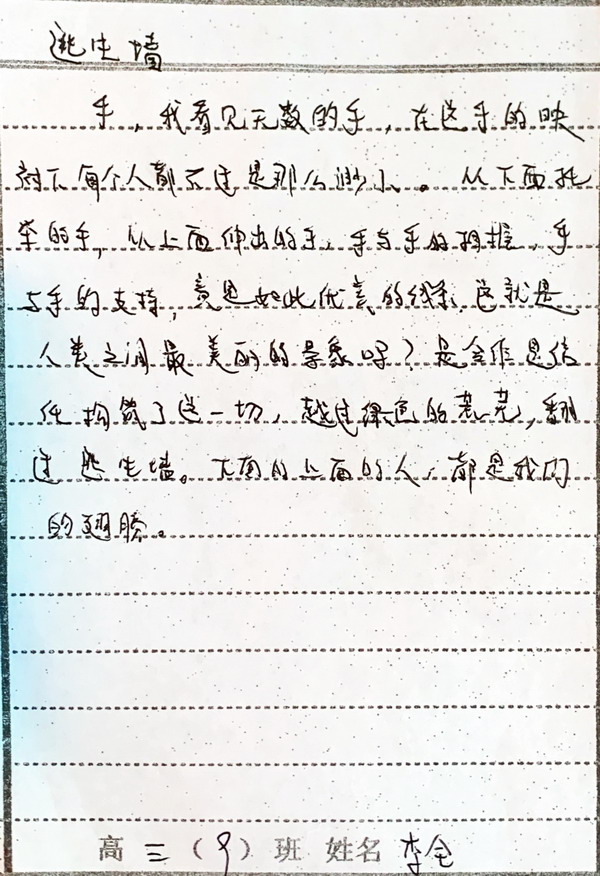 逃生墙
手，我看见无数的手，在这手的映
衬下每个人都不过是那么渺小。从下面托
举的手，从上面伸出的手，手与手的相握，手
与手的支持，竟是如此优美的线条，这就是
人类之间最美丽的景象吗？是合作是信
任构筑了这一切，越过绿色的荒芜，翻
过逃生墙。下面的上面的人，都是我们
的翅膀。
高三（9）班 姓名 李金